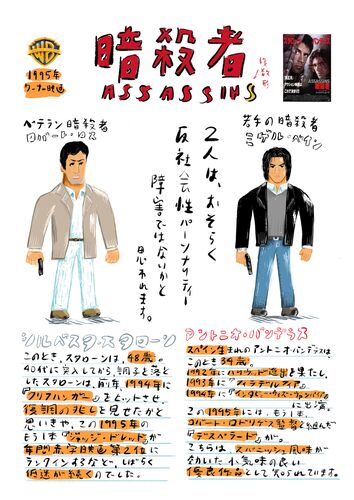 WB
1995年
ワーナー映画
暗殺者
ASSASSINS
ASSASSINS
ベテラン暗殺者
ロバート・ロス
若手の暗殺者
ミゲル・ベイン
2人は、おそらく
反社会性パーソナリティー
障害ではないかと
思われます。
シルベスタ・スタローン
このとき、スタローンは、48歳。
40代に突入してから、調子を落と
したスタローンは、前年、1994年に
『クリフハンガー』をヒットさせ、
復調の兆しを見せたかと
思いきや、この1995年の
もう1本『ジャッジ・ドレッド』が
年間最低映画第2位に
ランクインするなど、しばらく
低迷が続くのでした。
アントニオ・バンデラス
スペイン生まれのアントニオ・バンデラスは
このとき34歳。
1992年にハリウッド進出を果たし、
1993年に『フィラデルフィア』
1994年に『インタビュー・ウィズ・ヴァンパイア』
に出演。
この1995年には、もう1本
ロバート・ロドリゲス監督と組んだ
『デスペラード』がある。
こちらは、スパニッシュ風味が
効いた小気味の良い
優良作品として知られています。